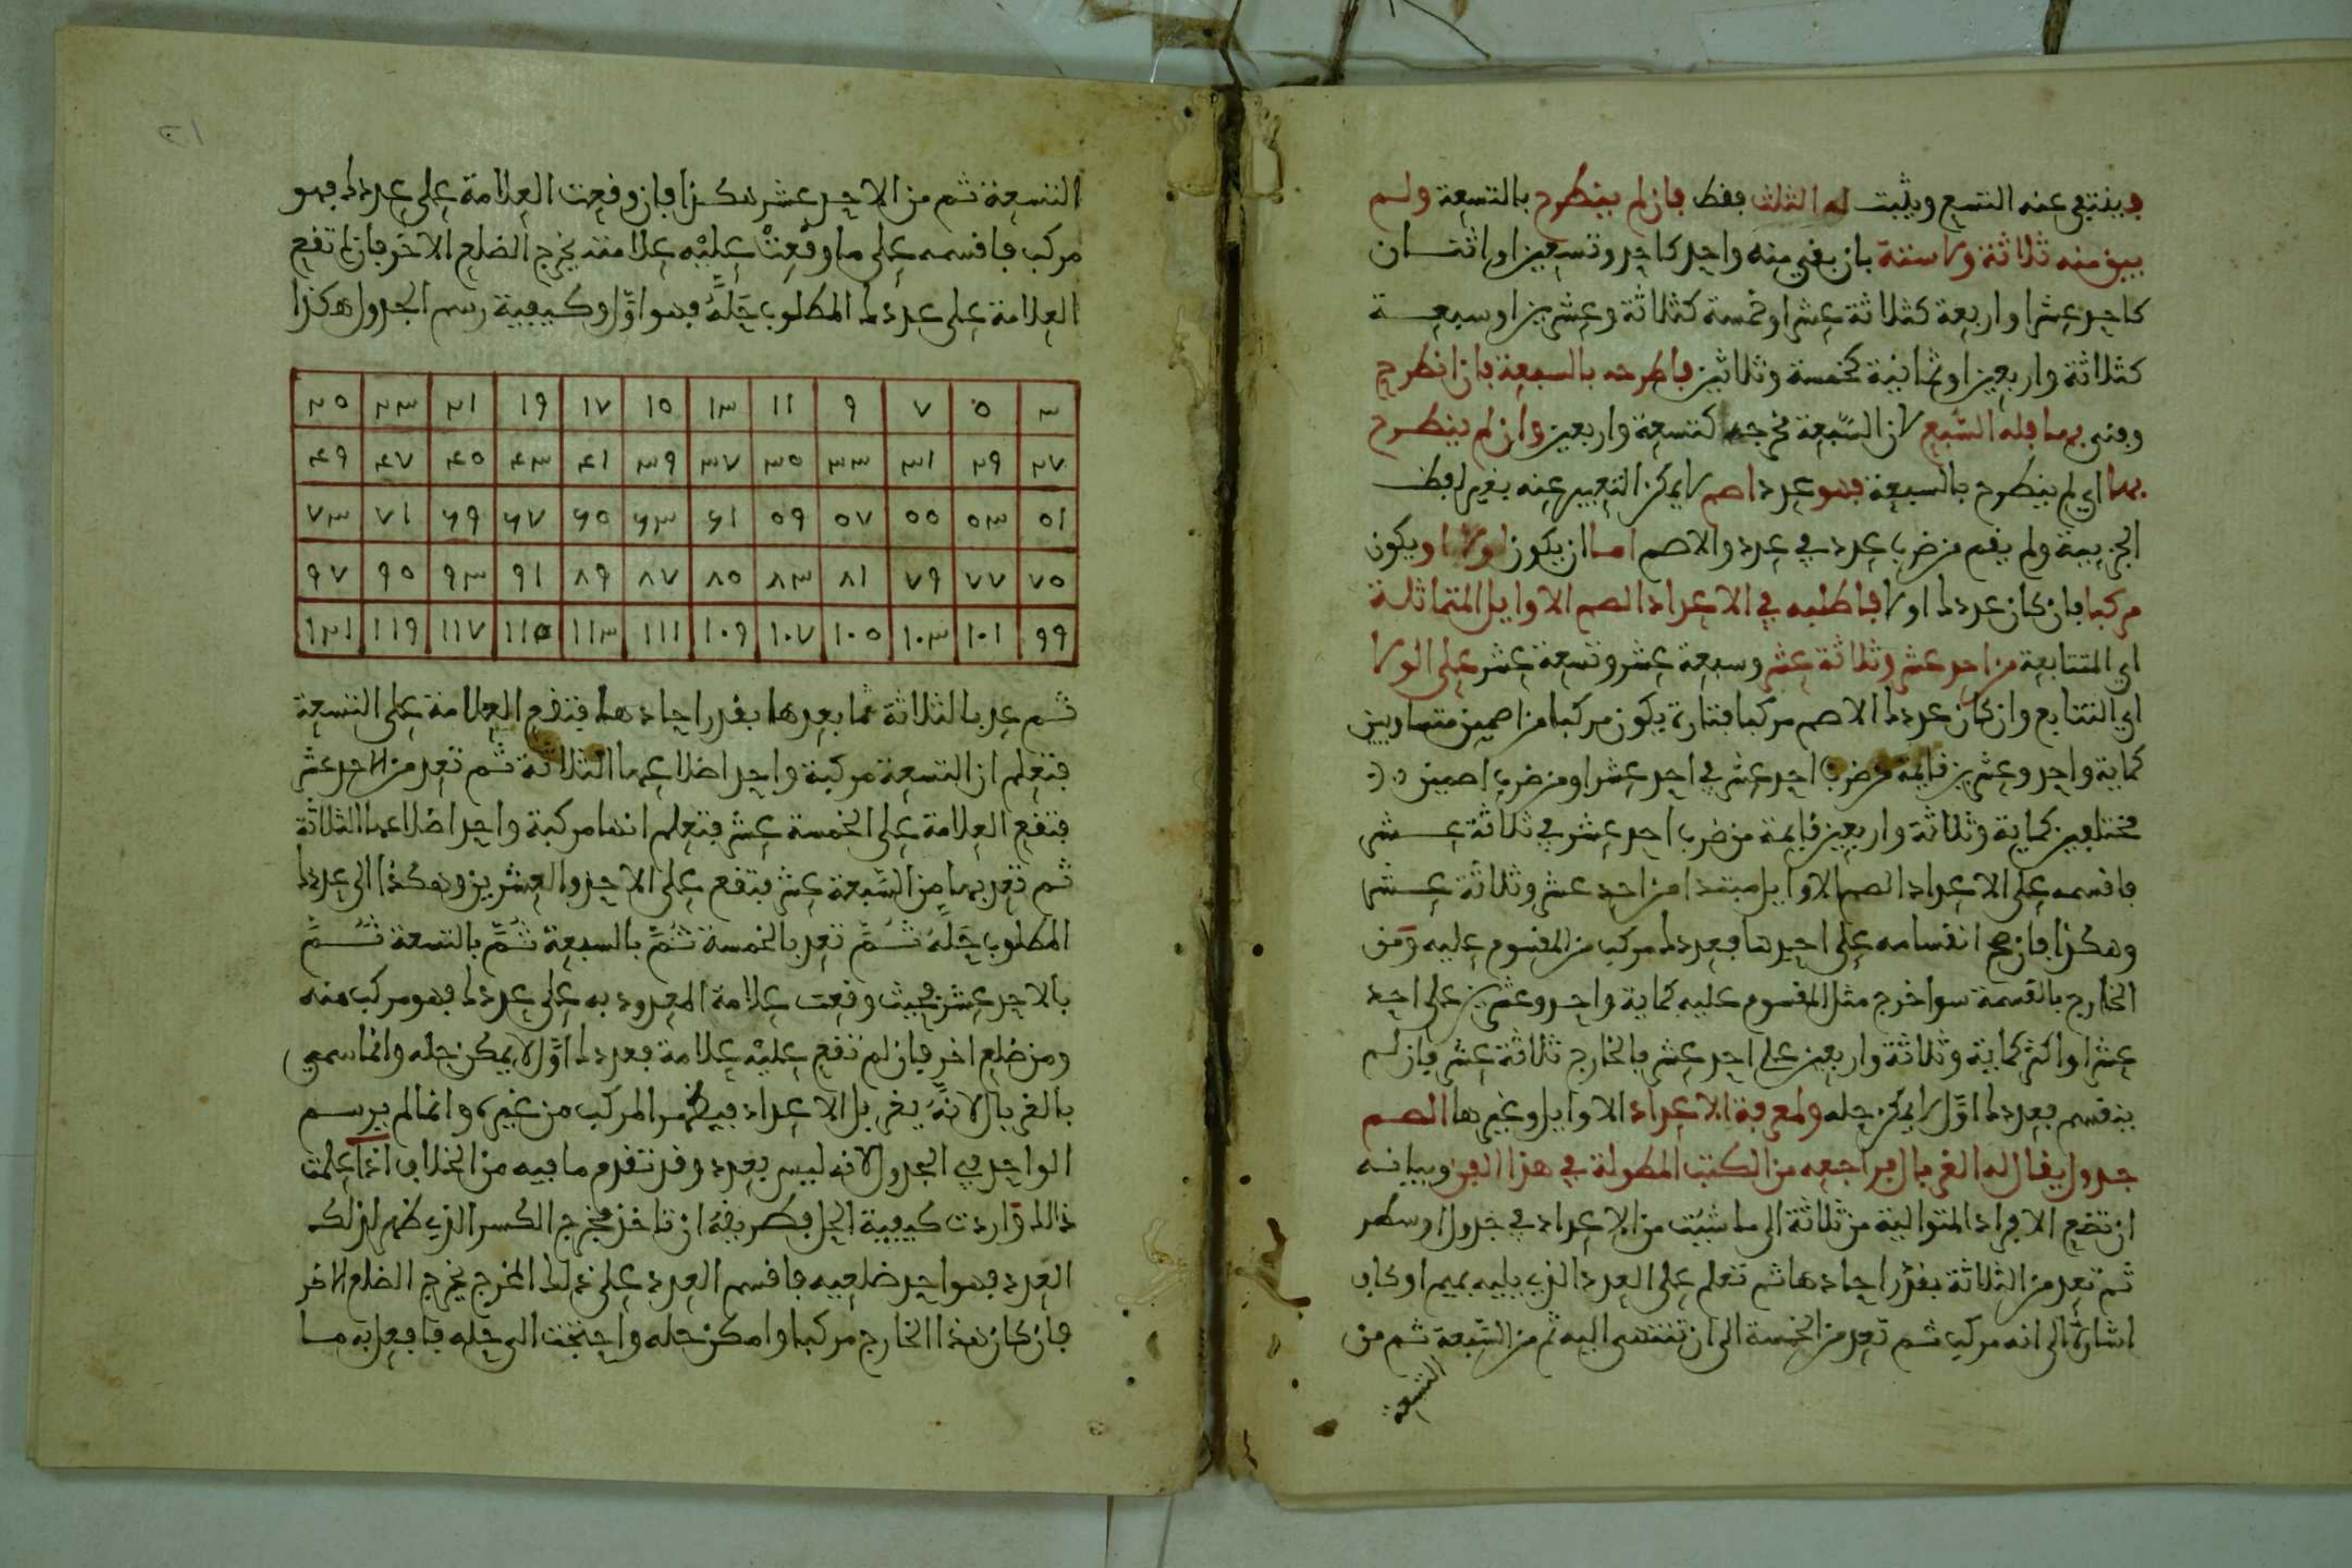 فينتفي عنه التسع ويثبت له الثلث فقط فإن لم ينطرح بالتسعة ولم
يبق منه ثلاثة ولا ستة بان بقي منه واحد كاحد وتسعين او اثنان
كاحد عشر او اربعة كثلاثة عشر او خمسة كثلاثة وعشرين او سبعة
كثلاثة واربعين او ثمانية كخمسة وثلاثين فاطرحه بالسبعة فان انطرح
وفني بها فله السُّبع لان السَّبعة مخرجه كتسعة واربعين وان لم ينطرح
بها اي لم ينطرح بالسبعة فهو عدد اصم لا يمكن التعبير عنه بغير لفظ
الجزيية ولم يقم من ضرب عدد في عدد والاصم اما ان يكون اولا او يكون
مركبا فان كان عددك اولا فاطلبه في الاعداد الصم الاوايل المتماثلة
اي المتتابعة من احد عشر وثلاثة عشر وسبعة عشر وتسعة عشر على الولا
اي التتابع وان كان عددك الاصم مركبا فتارة يكون مركبا من اصمين متساويين
كماية واحد وعشرين قايمة من ضرب احد عشر في احد عشر او من ضرب اصمين
مختلفين كماية وثلاثة واربعين قايمة من ضرب احد عشر في ثلاثة عشر
فاقسمه على الاعداد الصم الاوايل مبتدا من احد عشر وثلاثة عشر
وهكذا فان صح انقسامه على احدها فعددك مركب من المقسوم عليه ومن
الخارج بالقسمة سوا خرج مثل المقسوم عليه كماية واحد وعشرين على احد
عشر او اكثر كماية وثلاثة واربعين على احد عشر فالخارج ثلاثة عشر فان لم
ينقسم فعددك اوَّل لا يمكن حله ولمعرفة الاعداد الاوايل وغيرها الصم
جدول يقال له الغربال فراجعه من الكتب المطولة في هذا الفن وبيانه
ان تضع الافراد المتوالية من ثلاثة الى ما شيت من الاعداد في جدول او سطر
ثم تعد من الثلاثة بقدر احادها ثم تعلم على العدد الذي يليه بميم او كاف
اشارة الى انه مركب ثم تعد من الخمسة الى ان تنتهي اليه ثم من السَّبعة ثم من
التسعة
التسعة ثم من الاحد عشر هكذا فان وقعت العلامة على عددك فهو
مركب فاقسمه على ما وقعتْ عليْه علامته يخرج الضلع الاخر فان لم تقع
العلامة على عددك المطلوب حَلُّهُ فهو اوَّل وكيفية رسم الجدول هكذا
٣ ٥ ٧ ٩ ١١ ١٣ ١٥ ١٧ ١٩ ٢١ ٢٣ ٢٥
٢٧ ٢٩ ٣١ ٣٣ ٣٥ ٣٧ ٣٩ ٤١ ٤٣ ٤٥ ٤٧ ٤٩
٥١ ٥٣ ٥٥ ٥٧ ٥٩ ٦١ ٦٣ ٦٥ ٦٧ ٦٩ ٧١ ٧٣
٧٥ ٧٧ ٧٩ ٨١ ٨٣ ٨٥ ٨٧ ٨٩ ٩١ ٩٣ ٩٥ ٩٧
٩٩ ١٠١ ١٠٣ ١٠٥ ١٠٧ ١٠٩ ١١١ ١١٣ ١١٥ ١١٧ ١١٩ ١٢١
ثم عد بالثلاثة مما بعدها بقدر احادها فتقع العلامة على التسعة
فتعلم ان التسعة مركبة واحد اضلاعها الثلاثة ثم تعد من الاحد عشر
فتقع العلامة على الخمسة عشر فتعلم انها مركبة واحد اضلاعها الثلاثة
ثم تعد بها من السَّبعة عشر فتقع على الاحد والعشرين وهكذا الى عددك
المطلوب حَلُّهُ ثُمَّ تعد بالخمسة ثُمَّ بالسبعة ثُمَّ بالتسعة ثُمَّ
بالاحد عشر فحيث وقعت علامة المعدود به على عددك فهو مركب منه
ومن ضلع اخر فان لم تقع عليْه علامة فعددك اوَّل لا يمكن حله وانما سمي
بالغربال لانَّهُ يغربل الاعداد فيظهر المركب من غيره وانما لم يرسم
الواحد في الجدول لانه ليس بعدد وقد تقدم ما فيه من الخلاف اذا علمت
ذالك واردت كيفية الحل فطريقهُ ان تاخذ مخرج الكسر الذي ظهر لذلك
العدد فهو احد ضلعيه فاقسم العدد على ذلك المخرج يخرج الضلع الاخر
فان كان هذا الخارج مركبا وامكن حله واحتجت الى حله فافعل به ما